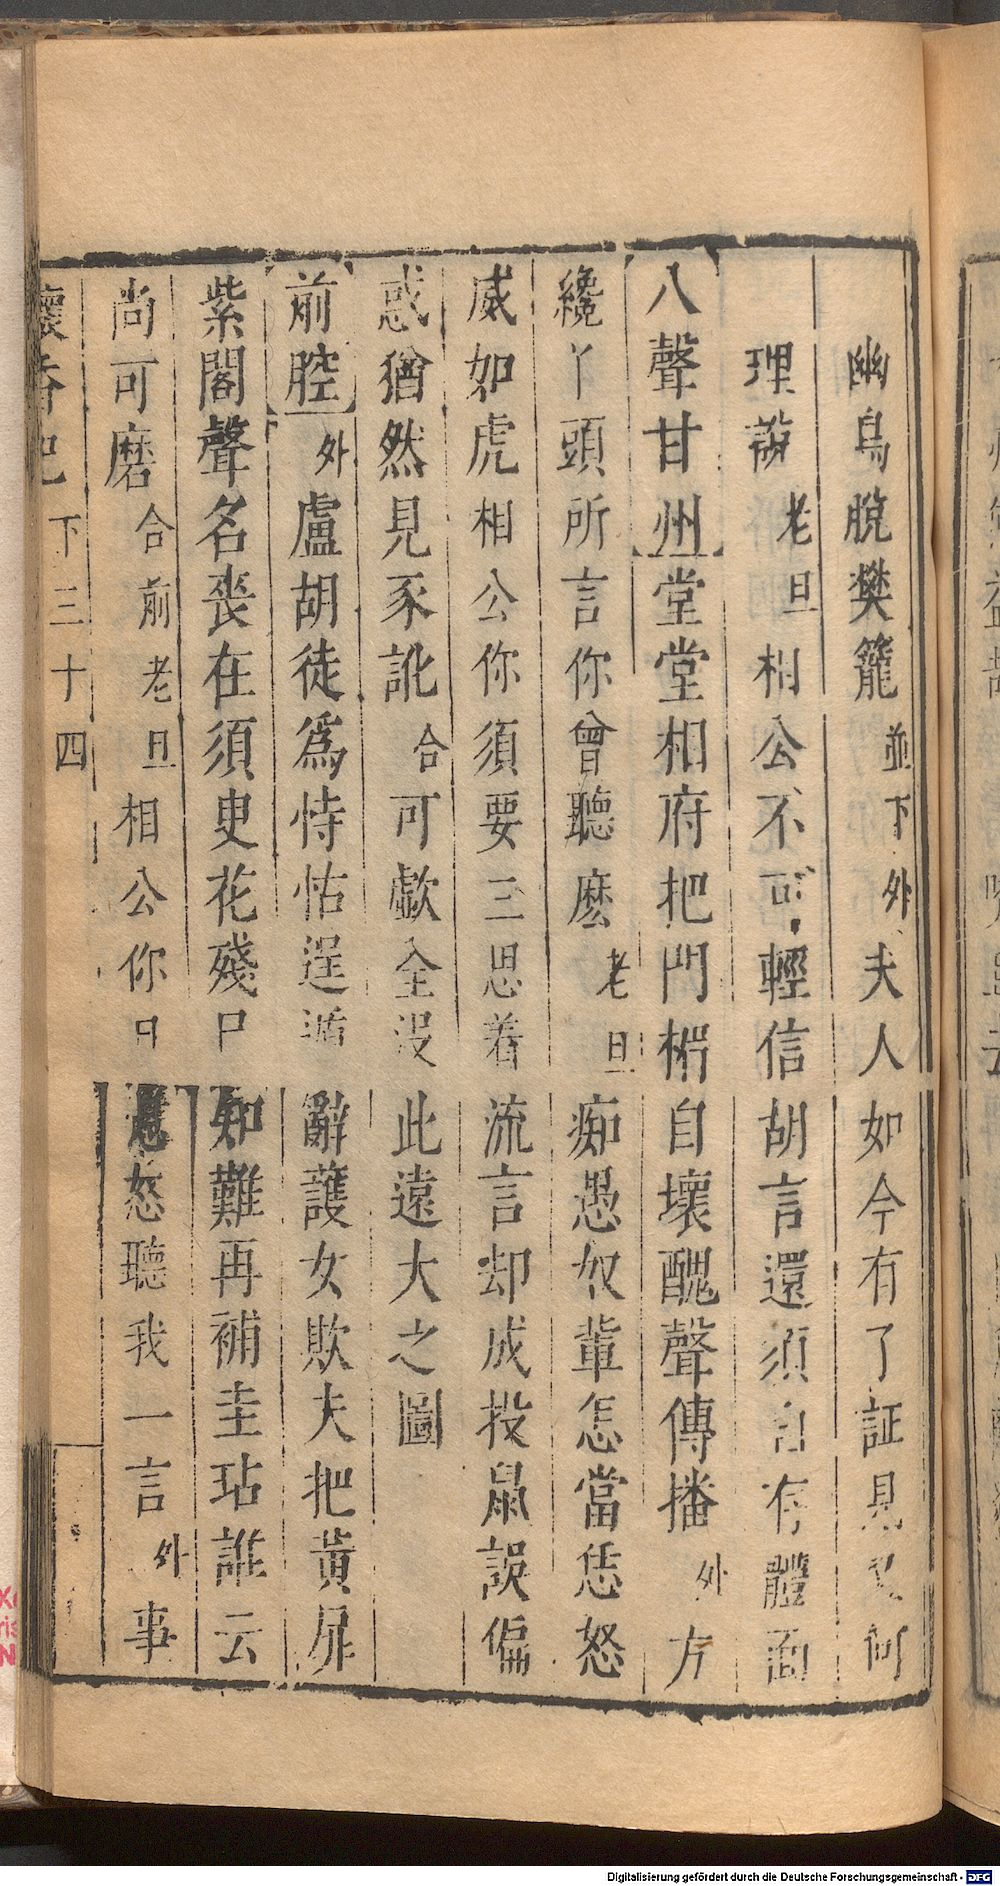 幽鳥脫樊籠並下外夫人如今有了証見又何
理說老旦相公不可輕信胡言還須自存體面
八聲甘州堂堂相府把門楣自壞醜聲傳播外方
纔丫頭所言你曾聽麽老旦痴愚奴輩怎當恁怒
威如虎相公你須要三思着流言却成投鼠誤偏
惑猶然見豕訛合可歔全沒此遠大之圖
前腔外盧胡徒爲恃怙逞遁辭護女欺夫把黄扉
紫閣聲名喪在須臾花殘 知難再補圭玷誰云
尚可磨合前老旦相公你 息怒聽我一言外事
懷香記 下三十四
Digitalisierung gefördert durch die Deutsche Forschungsgemeinschaft - DFG